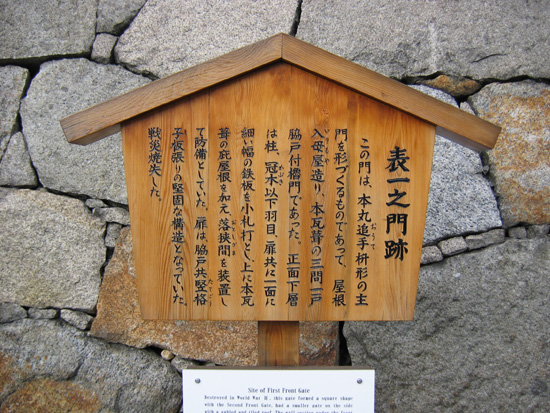 表一之門跡
この門は、本丸追手枡形の主
門を形づくるものであって、屋根
入母屋造り、本瓦葺の三間一戸
脇戸付櫓門であった。正面下層
は柱、冠木以下羽目、扉共に一面に
細い幅の鉄板を小札打とし、上に本瓦
葺の庇屋根を加え、落狭間を装置し
て防備としていた。扉は、脇戸共竪格
子板張りの堅固な構造となっていた。
戦災焼失した。
Site of First Front Gate
Destroyed in World War II, this gate formed a square shape
with the Second Front Gate, had a smaller gate on the side